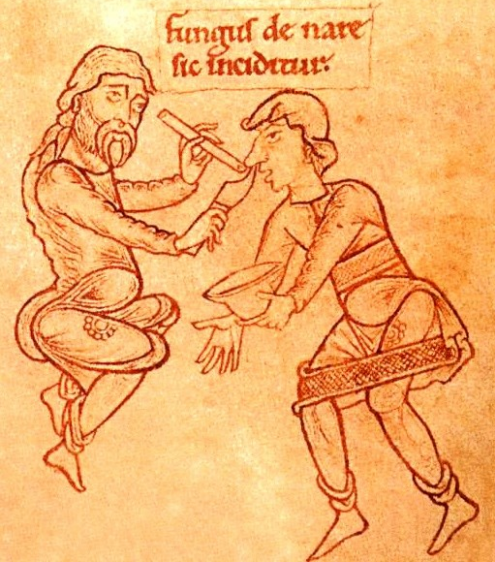 fungus de nare
sic inciditur.